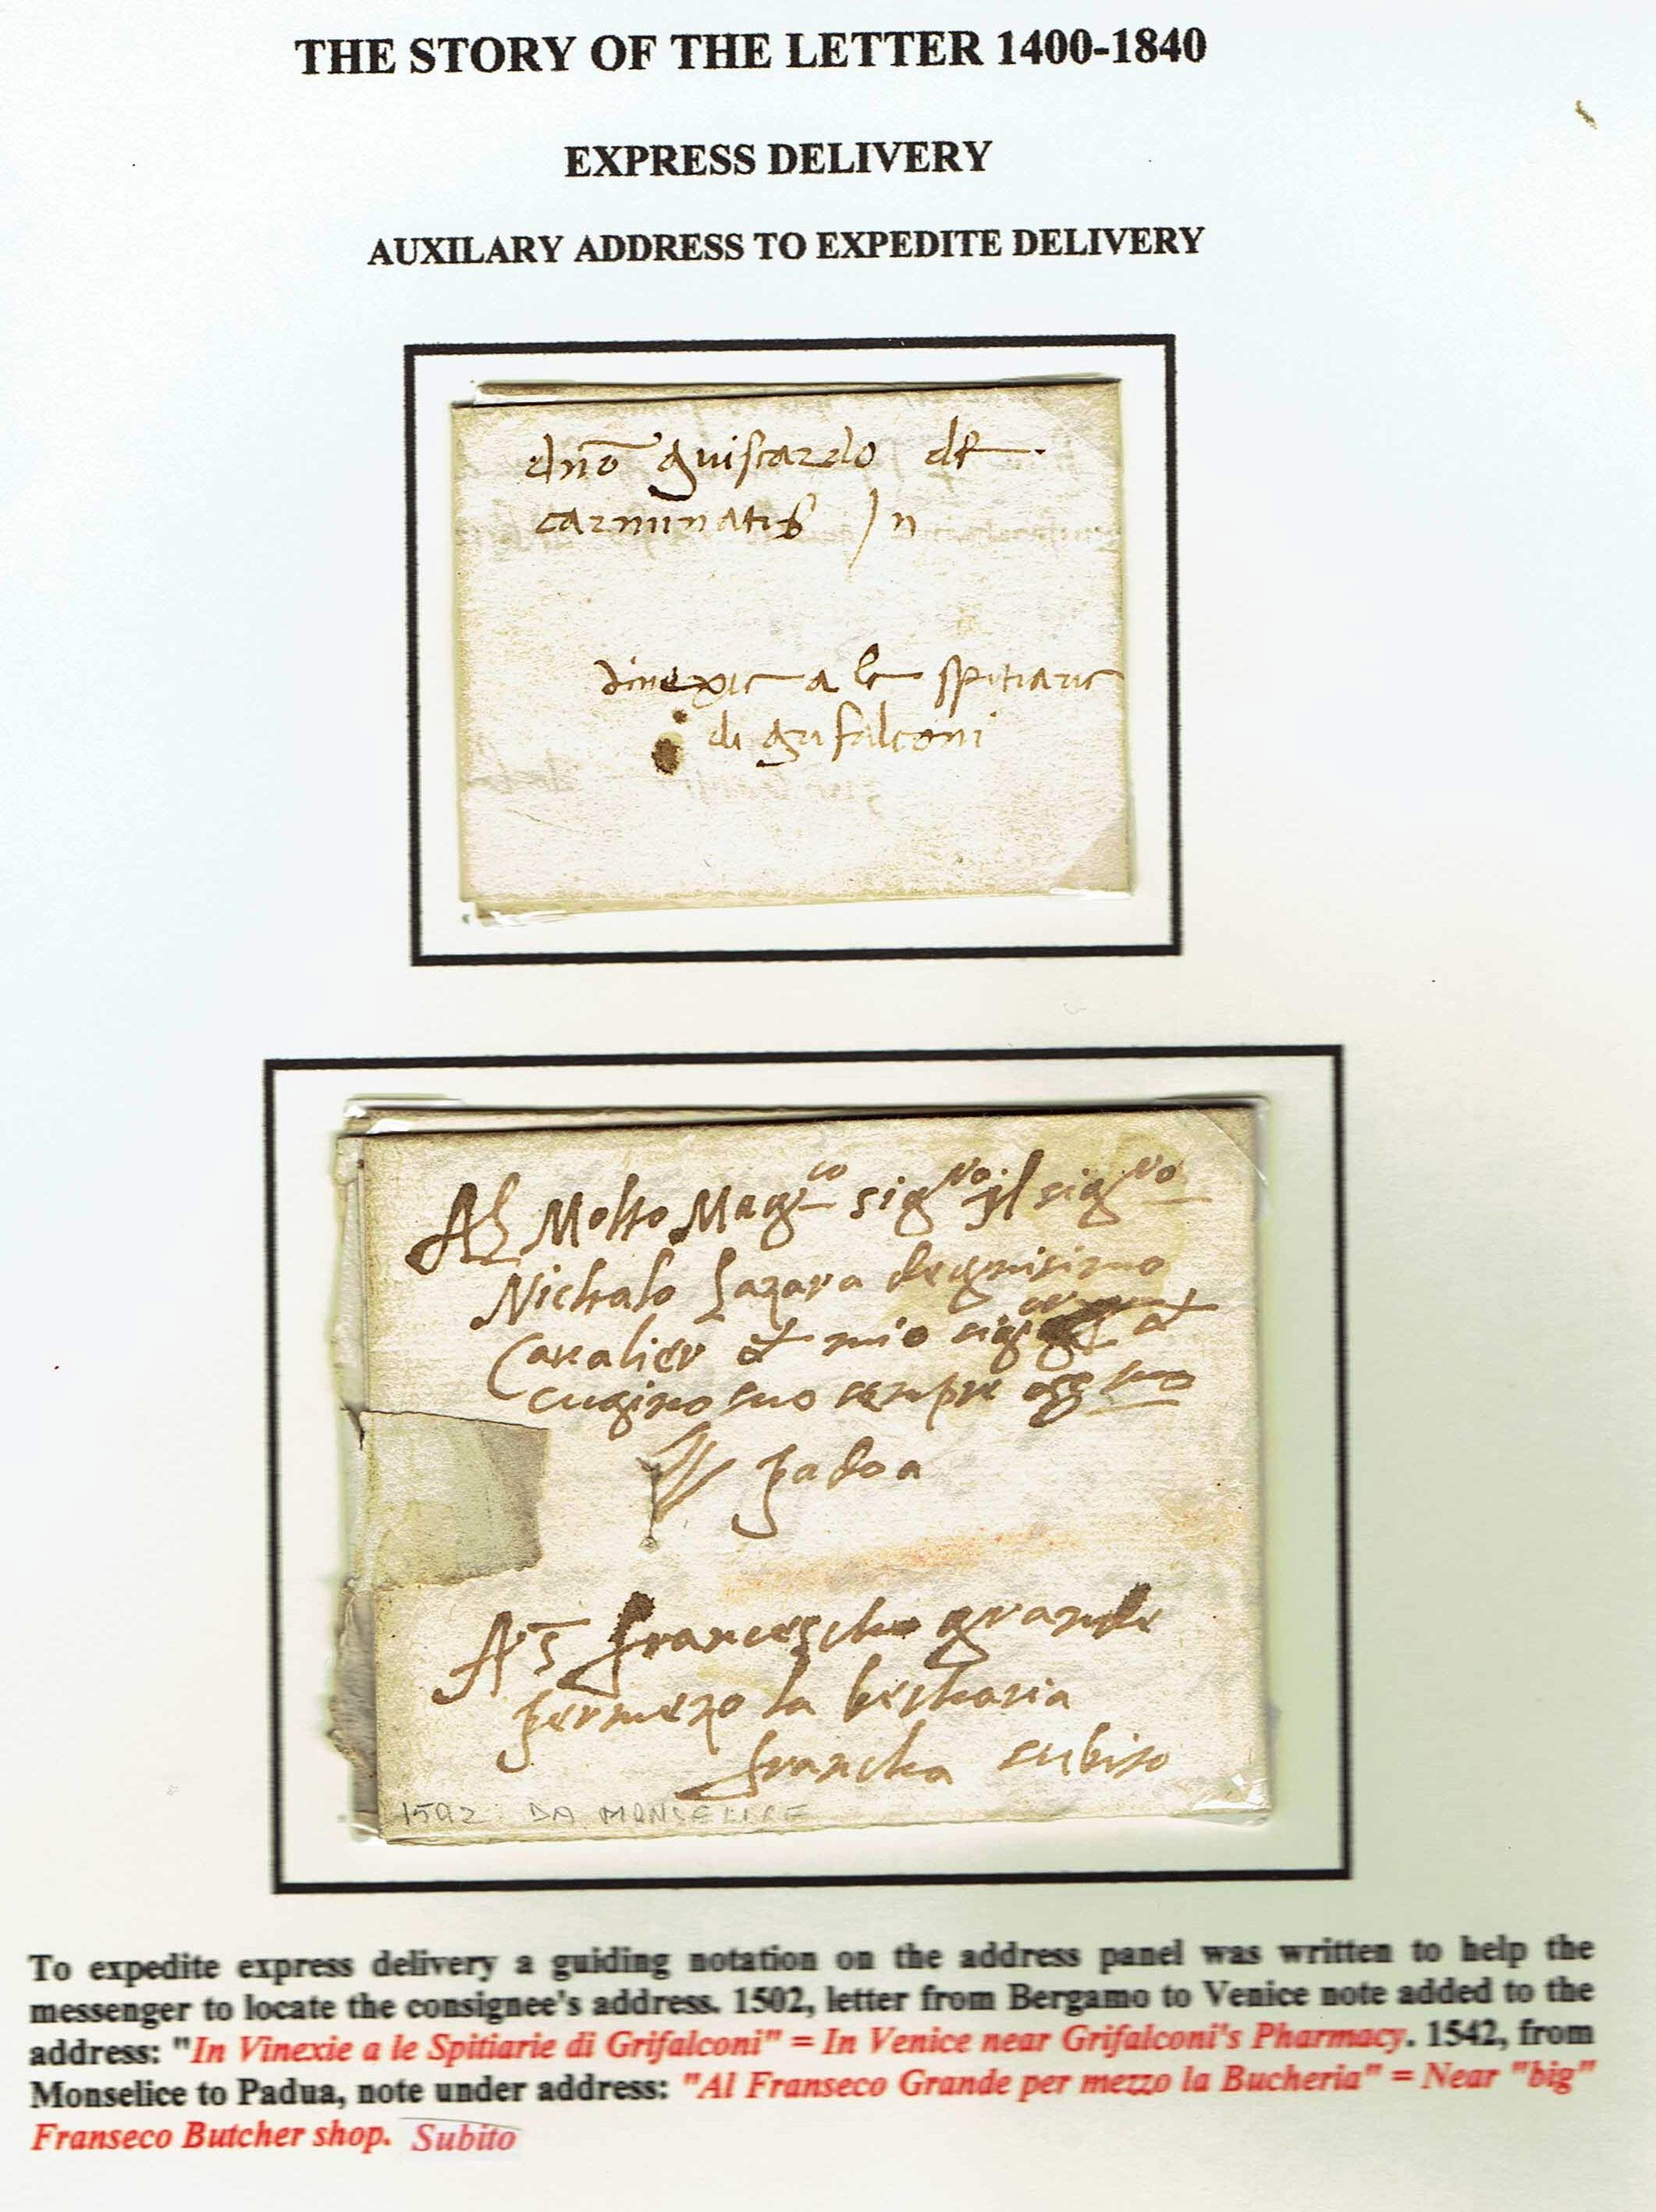 THE STORY OF THE LETTER 1400-1840
EXPRESS DELIVERY
AUXILARY ADDRESS TO EXPEDITE DELIVERY
dno guiscardo de
carminatis In
vinexie a le spitiarie
di grifalconi
Al Molto Magco sigro il sigro
Nicholo Lazara degnisimo
Cavalier et mio et
cugino suo sempre
Padoa
A S francescho grande
per mezo la becharia
francha subito
1592 DA MONSELICE
To expedite express delivery a guiding notation on the address panel was written to help the
messenger to locate the consignee's address. 1502, letter from Bergamo to Venice note added to the
address: "In Vinexie a le Spitiarie di Grifalconi" = In Venice near Grifalconi's Pharmacy. 1542, from
Monselice to Padua, note under address: "Al Franseco Grande per mezzo la Bucheria" = Near "big"
Franseco Butcher shop. Subito